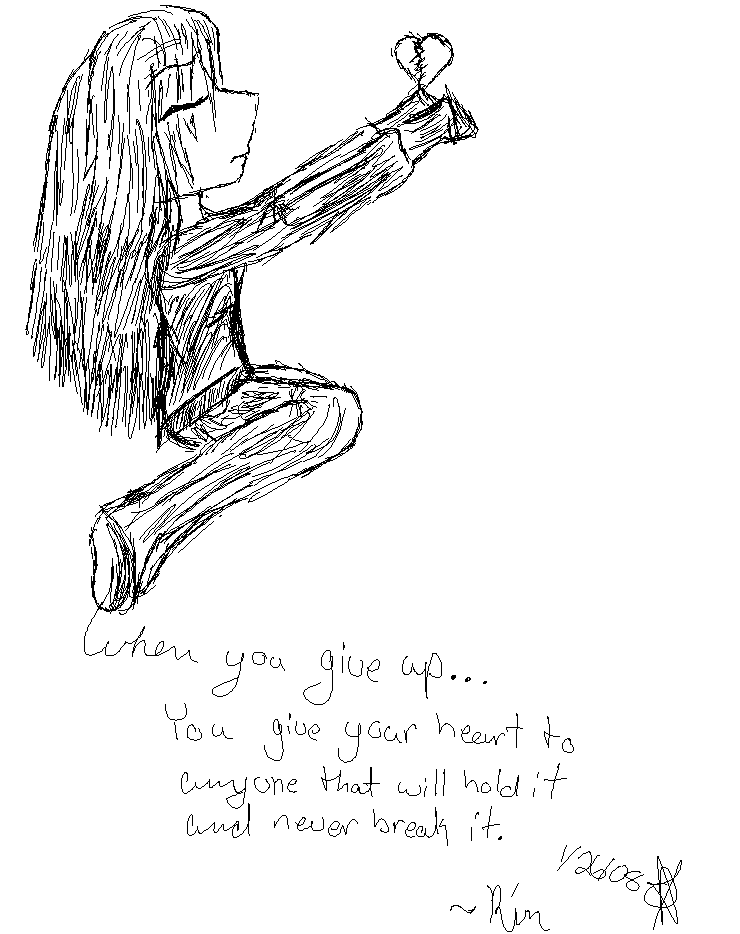 When you give up...
You give your heart to
anyone that will hold it
and never break it.
1/26/08
~Rin